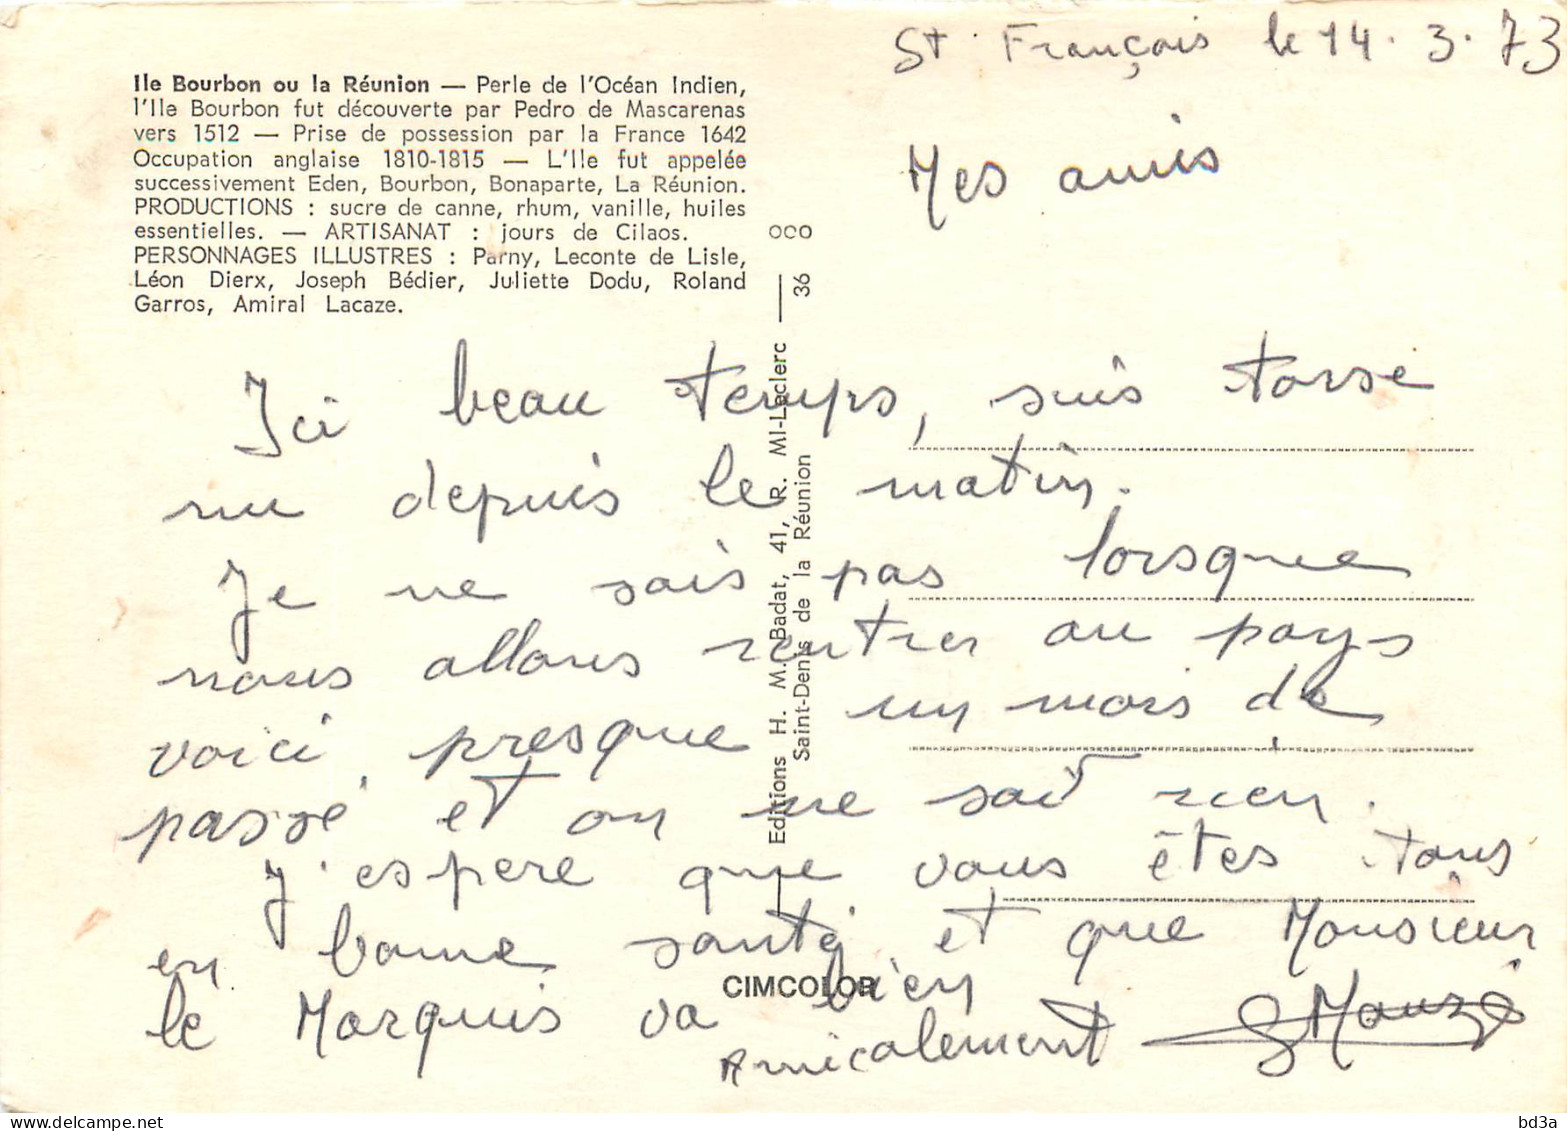 St François le 14.3.73
Ile Bourbon ou la Réunion — Perle de l'Océan Indien,
l'Ile Bourbon fut découverte par Pedro de Mascarenas
vers 1512 — Prise de possession par la France 1642
Occupation anglaise 1810-1815 — L'Ile fut appelée
successivement Eden, Bourbon, Bonaparte, La Réunion.
PRODUCTIONS : sucre de canne, rhum, vanille, huiles
essentielles. — ARTISANAT : jours de Cilaos.
PERSONNAGES ILLUSTRES : Parny, Leconte de Lisle,
Léon Dierx, Joseph Bédier, Juliette Dodu, Roland
Garros, Amiral Lacaze.
Mes amis
Ici beau temps, suis torse
nu depuis le matin.
Je ne sais pas lorsque
nous allons rentrer au pays
voici presque un mois de
passé et on ne sait rien.
J'espere que vous êtes tous
en bonne santé et que Monsieur
le Marquis va bien
Amicalement
Editions H. M. Badat, 41, R. Ml-Leclerc — 36
Saint-Denis de la Réunion
OCO
CIMCOLOR
bd3a